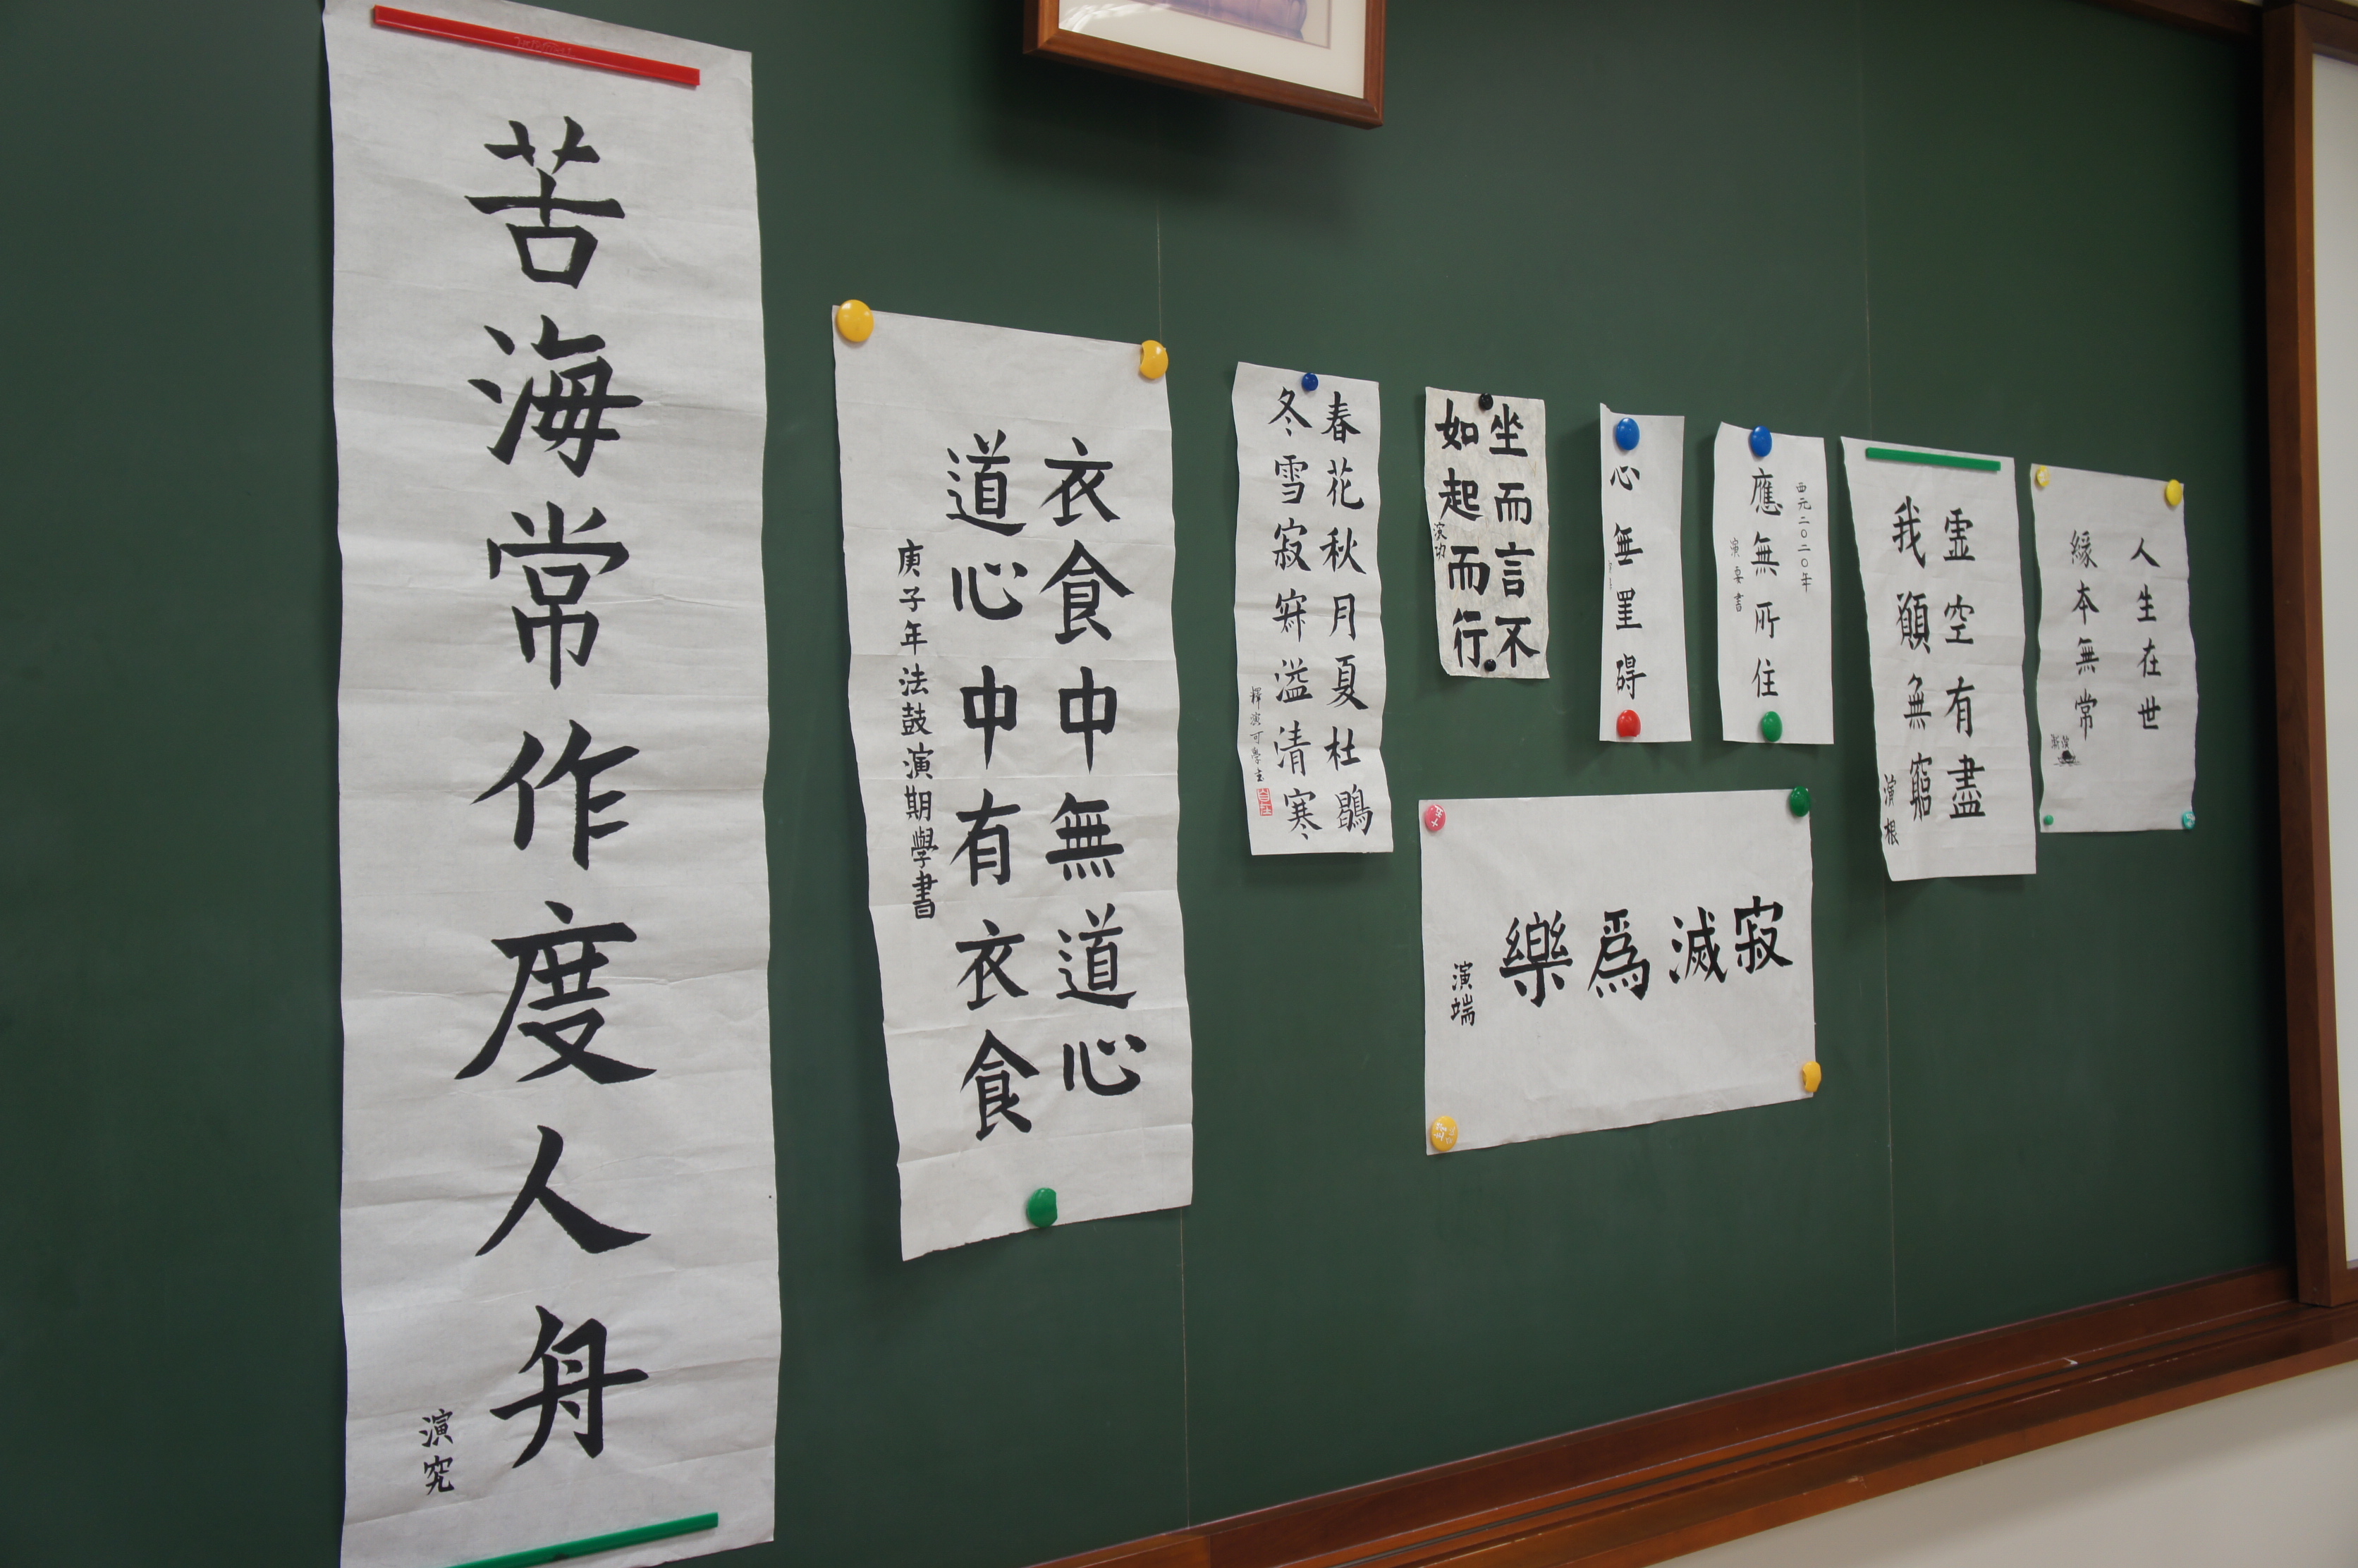 苦海常作度人舟
演究
衣食中無道心
道心中有衣食
庚子年法鼓演期學書
春花秋月夏杜鵑
冬雪寂寂溢清寒
釋演可學主
坐而言不
如起而行
演功
心無罣礙
西元二〇二〇年
應無所住
演要書
虛空有盡
我願無窮
演根
人生在世
緣本無常
寂滅為樂
演端